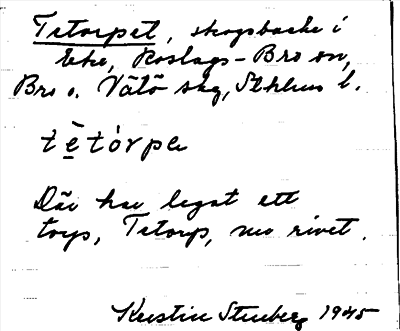 Tetorpet, skogsbacke i
Eke, Roslags-Bro sn,
Bro o. Vätö skg, Sthlms l.
tètórpe
Där har legat ett
torp, Tetorp, nu rivet.
Kerstin Stenberg 1945